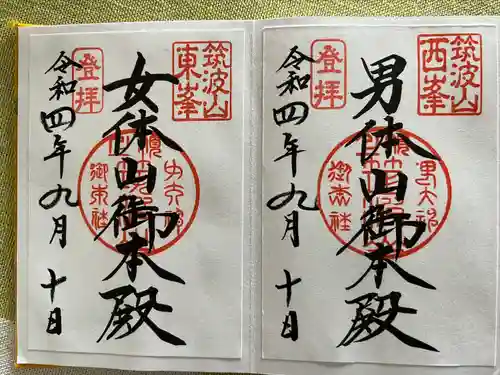 筑波山
西峯
登拝
男体山御本殿
令和四年九月十日
筑波山
東峯
登拝
女体山御本殿
令和四年九月十日